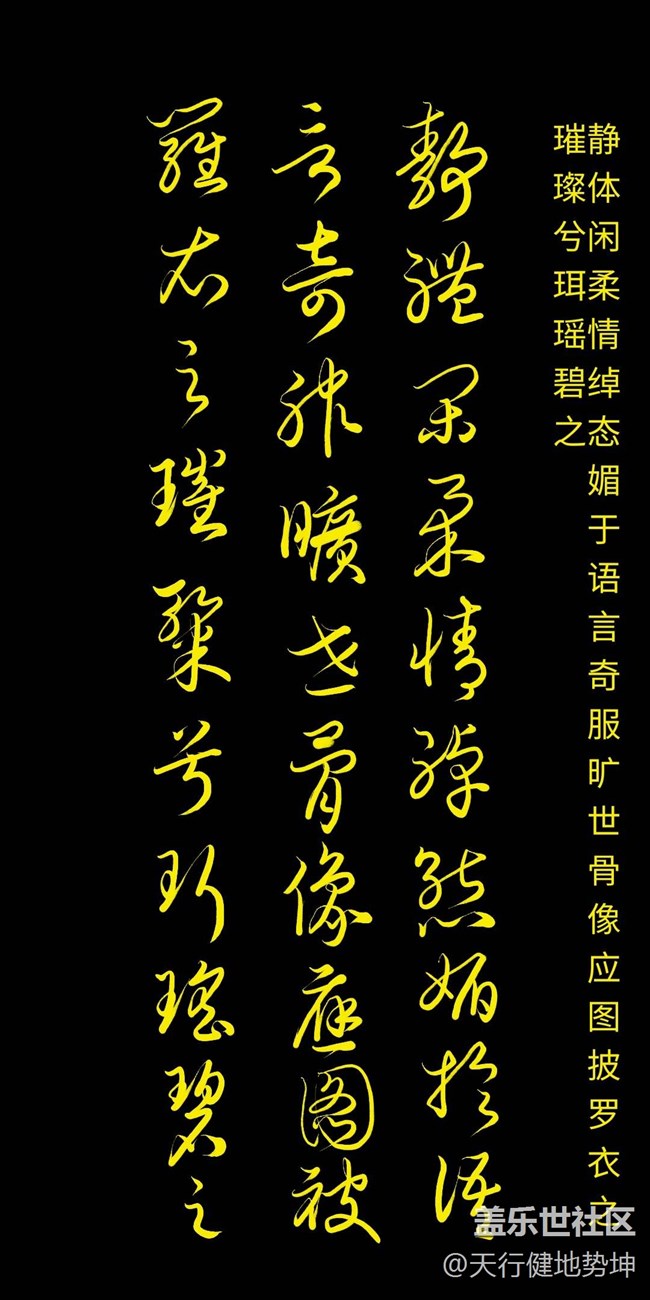 静体闲柔情绰态媚于语言奇服旷世骨像应图披罗衣之
璀璨兮珥瑶碧之
靜體閑柔情綽態媚於語
言奇服曠世骨像應圖被
羅衣之璀粲兮珥瑤碧之
盖乐世社区
@天行健地势坤